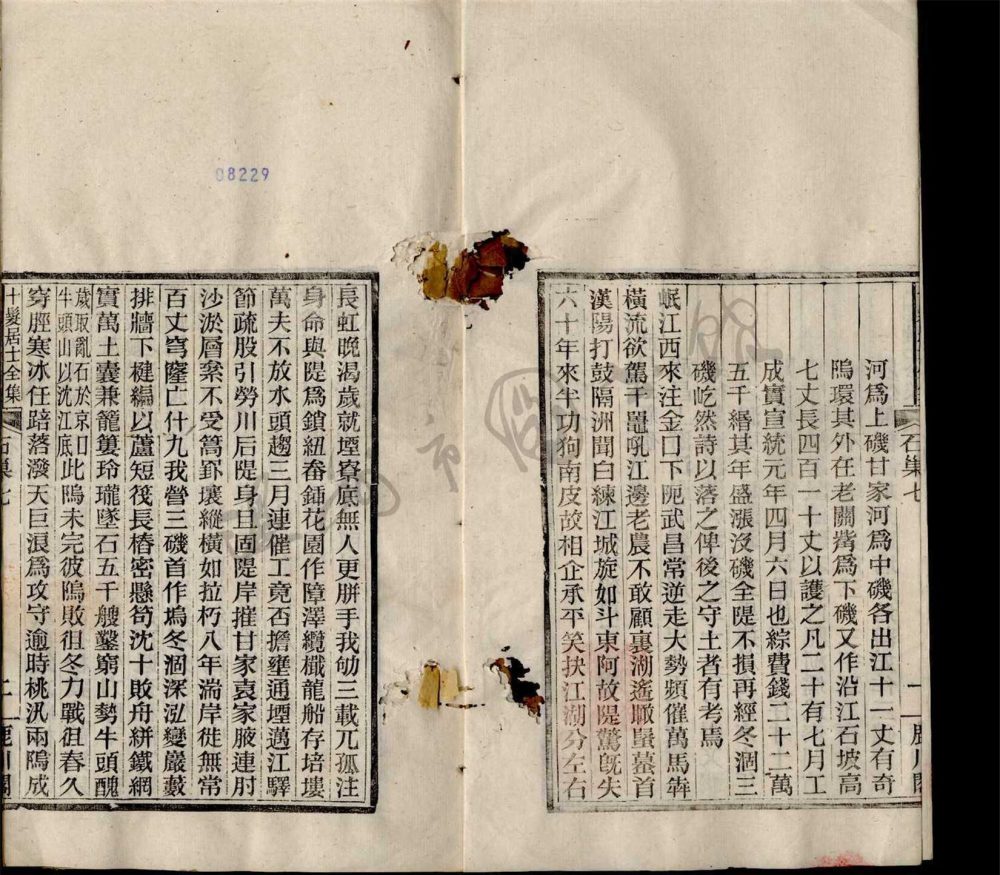 河爲上磯甘家河爲中磯各出江十一丈有奇
隖環其外在老關觜爲下磯又作沿江石坡高
七丈長四百一十丈以護之凡二十有七月工
成實宣統元年四月六日也綜費錢二十二萬
五千緡其年盛漲沒磯全隄不損再經冬涸三
磯屹然詩以落之俾後之守土者有考焉
岷江西來注金口下阨武昌常逆走大勢頻催萬馬犇
橫流欲駕千黿吼江邊老農不敢顧裏湖遙瞰蜃墓首
漢陽打鼓隔洲聞白練江城旋如斗東阿故隄驚旣失
六十年來半功狗南皮故相企承平笑抉江湖分左右
石巢七
長虹晚渴歲就堙寮底無人更胼手我劬三載兀孤注
身命與隄爲鎖紐畚鍤花園作障澤纜檥龍船存培塿
萬夫不放水頭趨三月連催工竟否擔壅通堙邁江驛
節疏股引勞川后隄身且固隄岸摧甘家袁家腋連肘
沙淤層案不受篙郢壞縱橫如拉朽八年湍岸徙無常
百丈穹窿亡什九我營三磯首作塢冬涸深泓變巖藪
排牆下楗編以蘆短筏長樁密懸笱沈十敗舟絣鐵網
實萬土囊兼籠簍玲瓏墜石五千艘鑿窮山勢牛頭醜
歲取亂石於京口
牛頭山以沈江底
此隖未完彼隖敗徂冬力戰徂春久
穿脛寒冰任踣落潑天巨浪爲攻守逾時桃汎兩隖成
十髮居士全集
石巢七
二
鹿川閣
08229